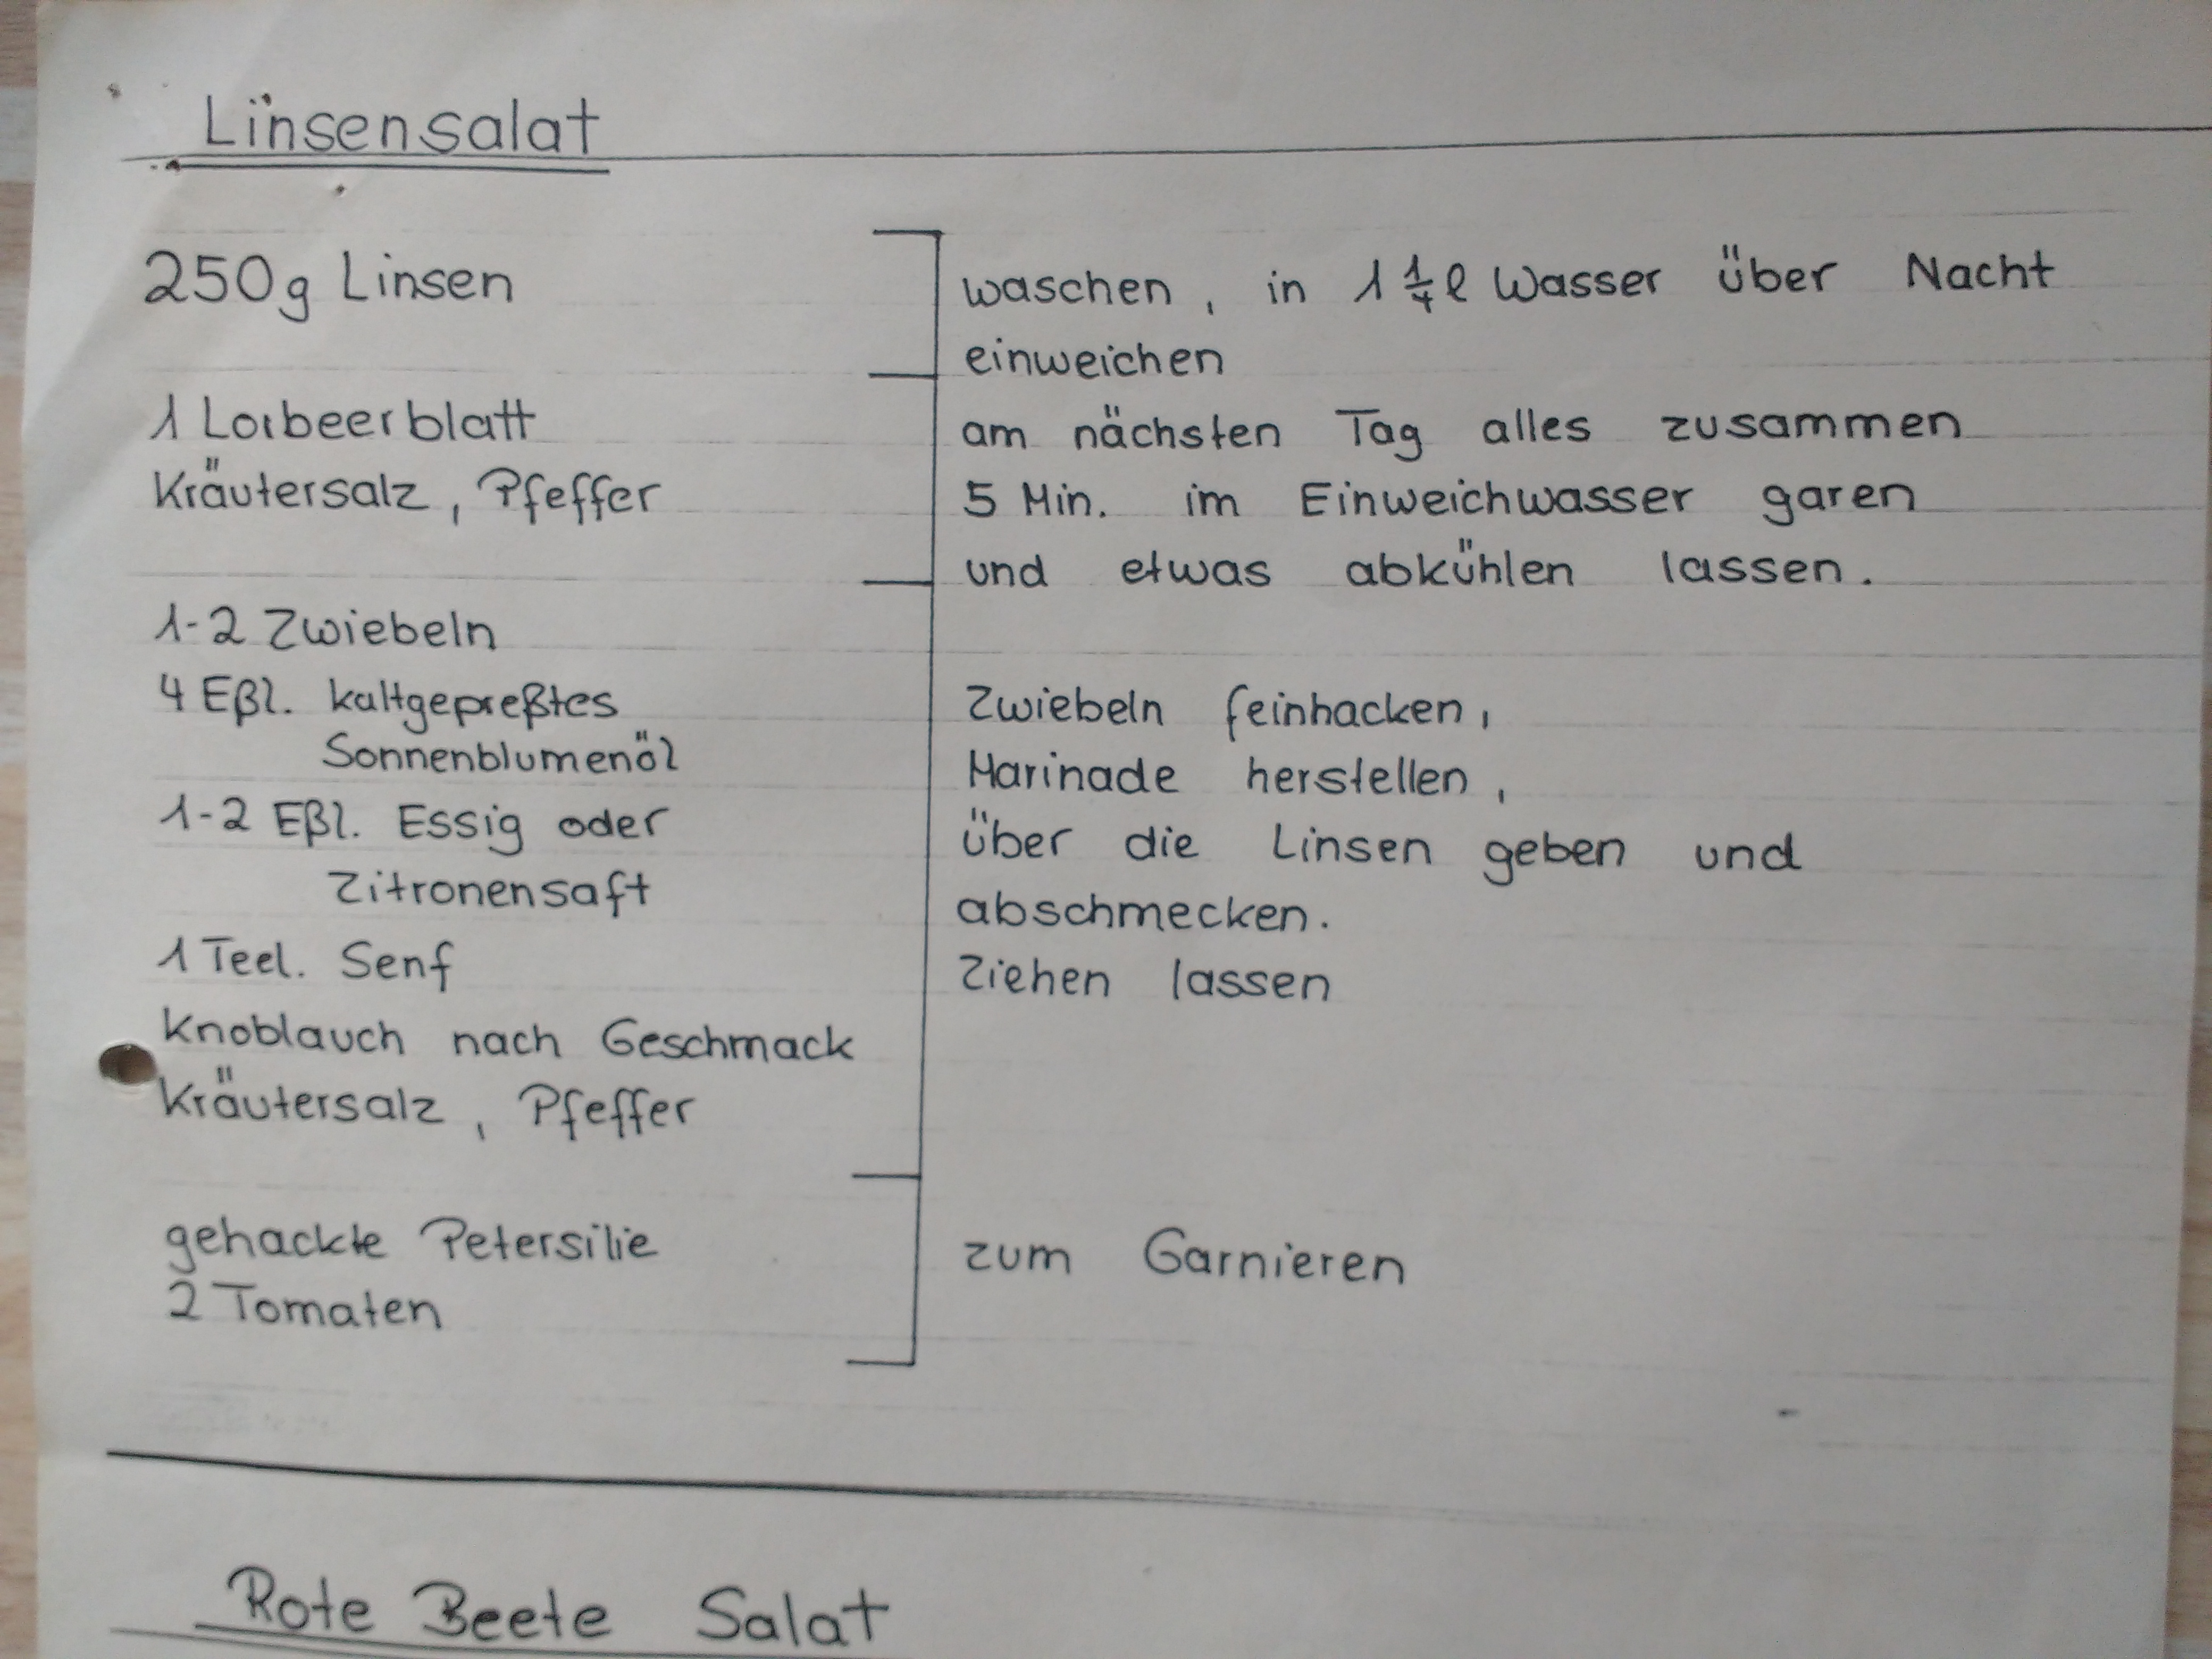 Linsensalat
250g Linsen
waschen, in 1 1/4 l Wasser über Nacht
einweichen
1 Lorbeerblatt
Kräutersalz, Pfeffer
am nächsten Tag alles zusammen
5 Min. im Einweichwasser garen
und etwas abkühlen lassen.
1-2 Zwiebeln
4 Eßl. kaltgepreßtes
Sonnenblumenöl
1-2 Eßl. Essig oder
Zitronensaft
1 Teel. Senf
Knoblauch nach Geschmack
Kräutersalz, Pfeffer
Zwiebeln feinhacken,
Marinade herstellen,
über die Linsen geben und
abschmecken.
Ziehen lassen
gehackte Petersilie
2 Tomaten
zum Garnieren
Rote Beete Salat